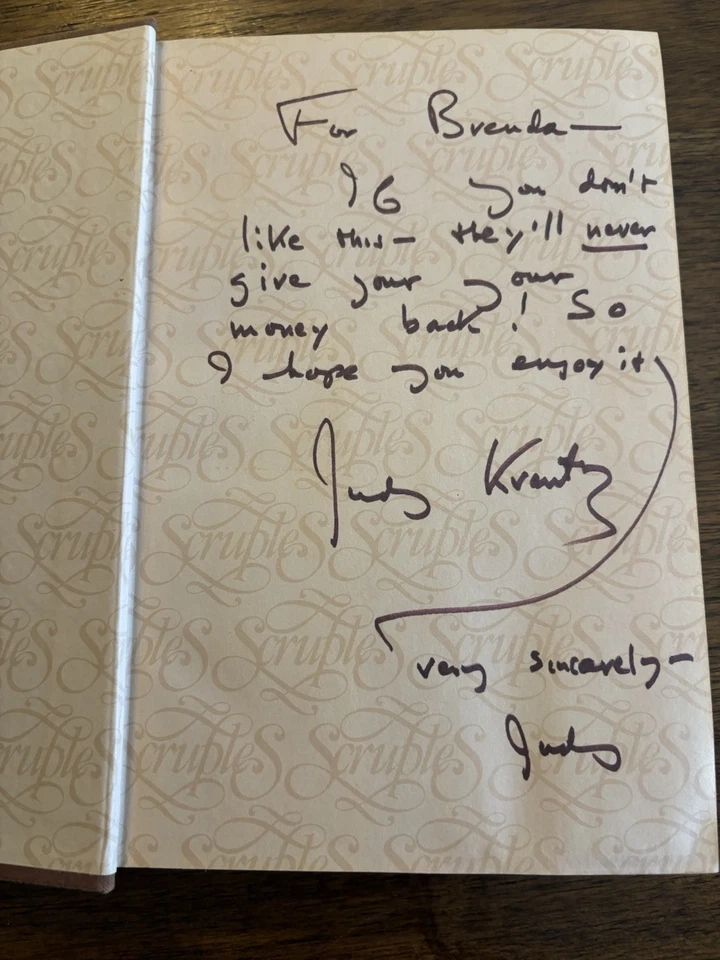 For Brenda—
If you don't
like this— they'll never
give your your
money back! So
I hope you enjoy it
Judy Krantz
very sincerely—
Judy
Scruples